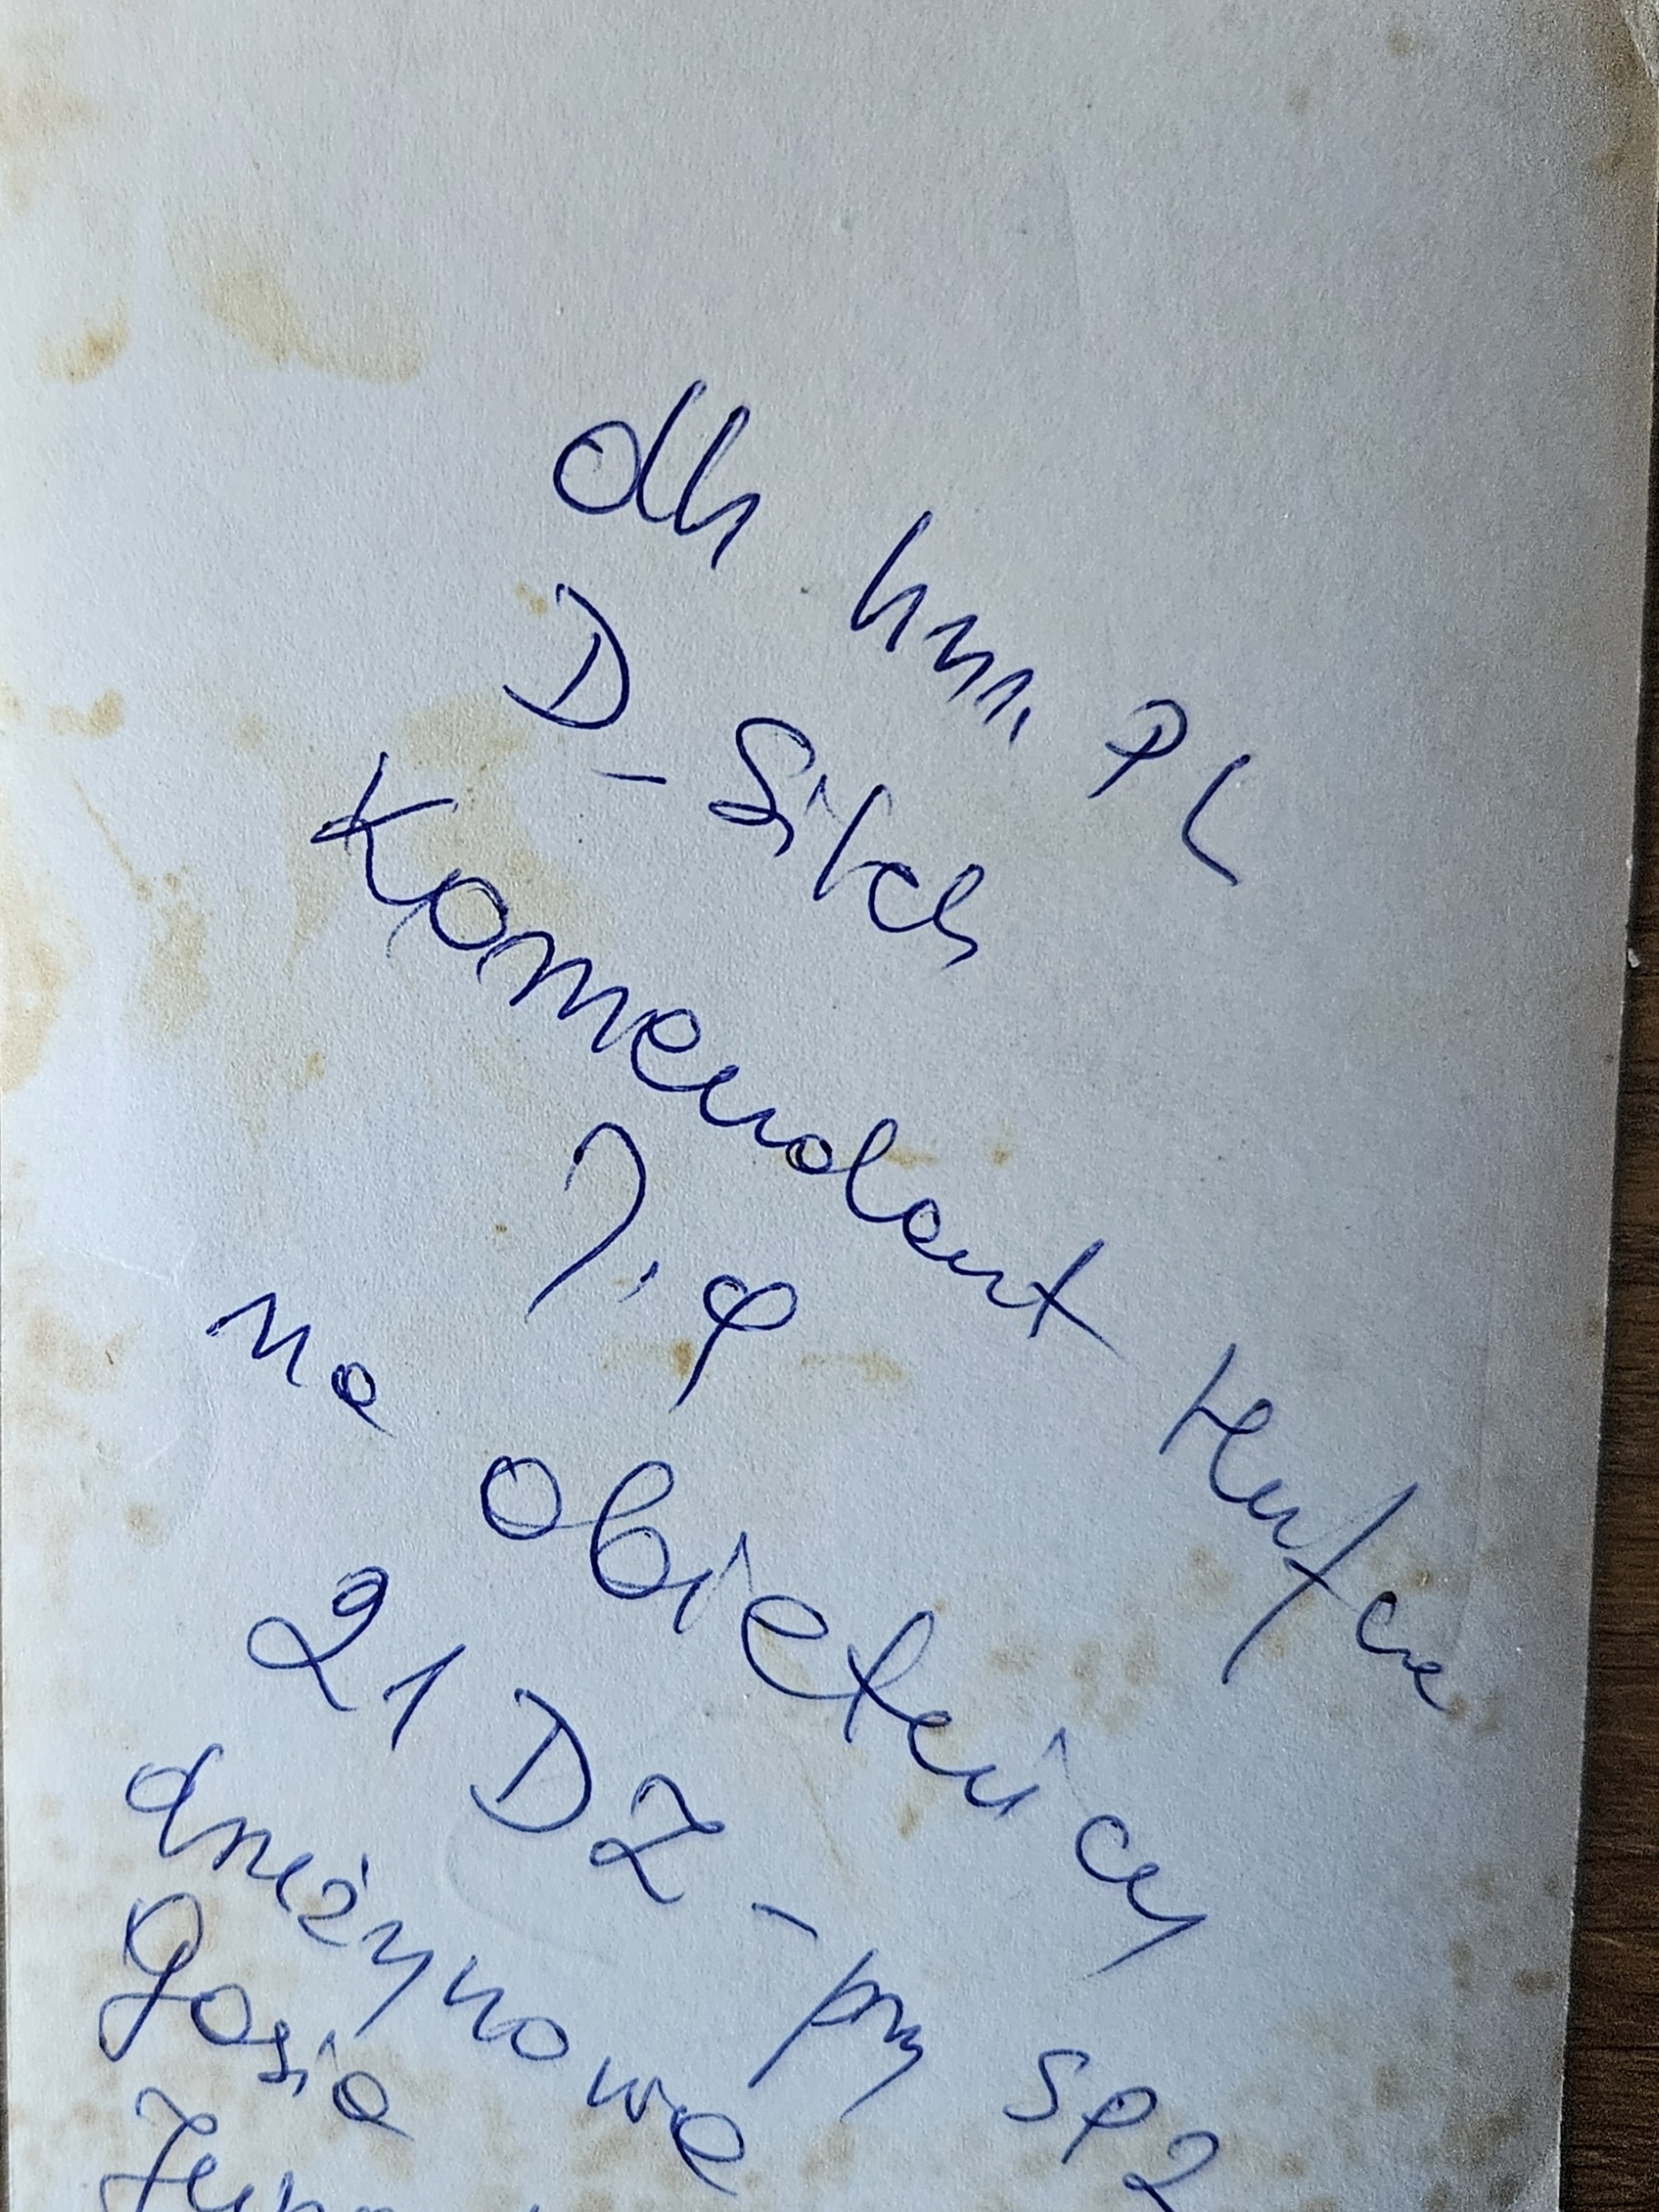 dh hm. PL
D. Sitek
Komendant Hufca
na obietnicy
21 DZ - przy SP2
drużynowa
Gosia